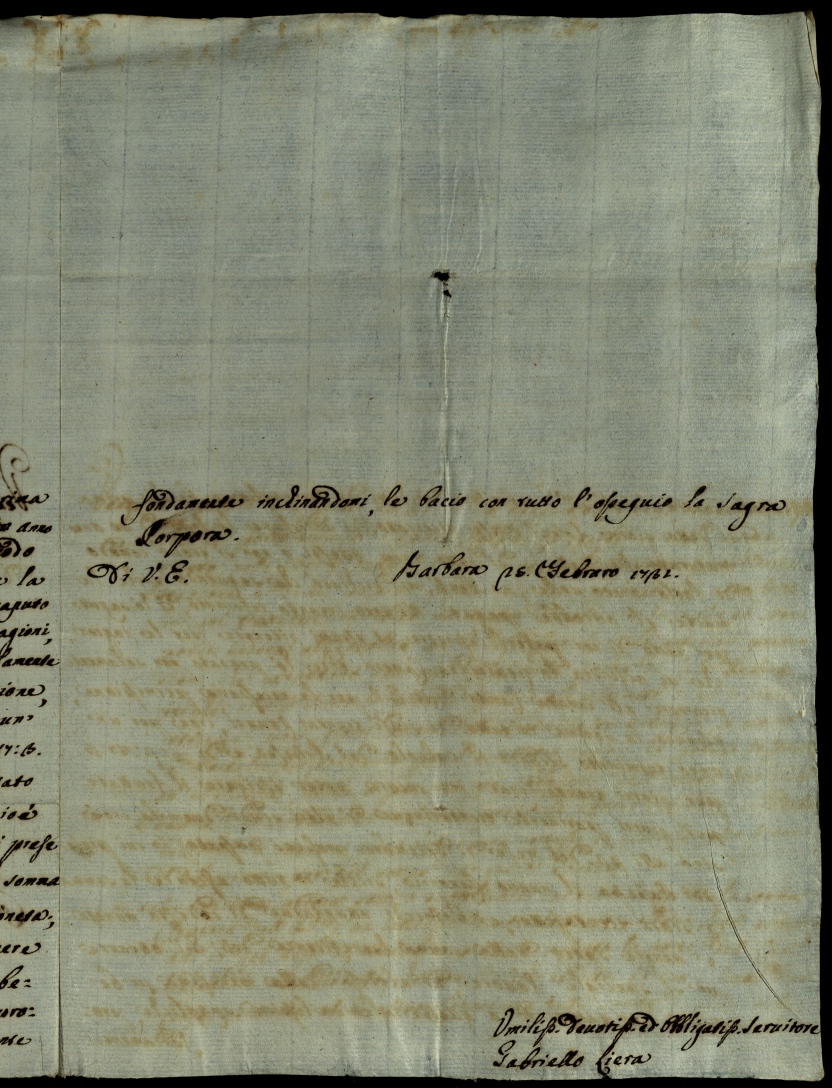 rina
anno
la
agioni,
lamente
ione,
un'
ato
cioè
prese
somma
neta;
ere
be=
pro=
nte
fondamente inclinandomi, le bacio con tutto l'ossequio la Sagra
Porpora.
Di V. E. Barbara 28. Febraro
Umiliss. Deuotiss. ed Obbligatiss. Seruitore
Gabriello Liera